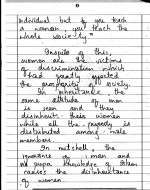 individual but if you teach
a woman, you teach the
whole society."
Inspite of this,
women are the victims
of discrimination which
had greatly affected
the prosperity of society.
In inheritance, the
same attitude of man
is seen and they
disinherit their women
while all the property is
distributed among male
members.
In nutshell, the
ignorance of man and
knowledge of Islam
causes the disinheritance
of woman.